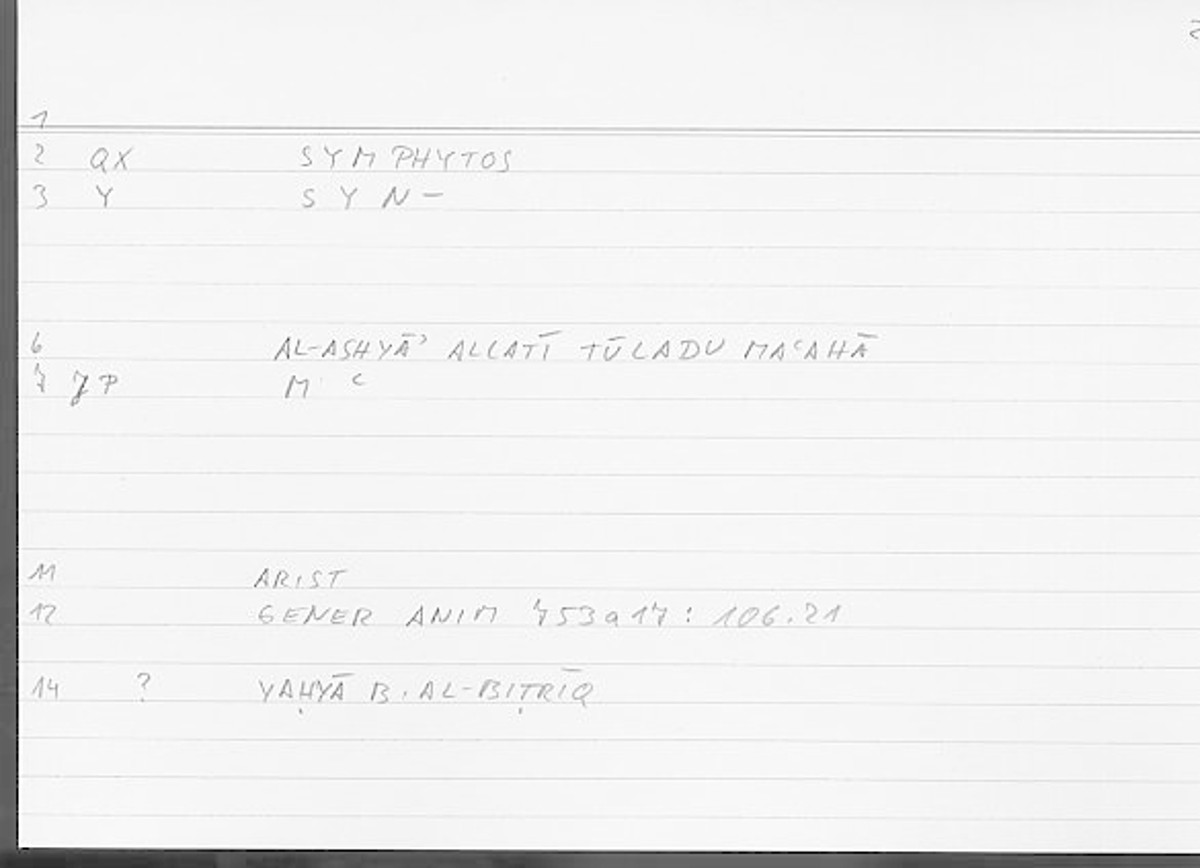 1
2 QX SYMPHYTOS
3 Y SYN-
6 AL-ASHYĀʾ ALLATĪ TŪLADU MAʿAHĀ
7 JP M ʿ
11 ARIST
12 GENER ANIM 753a17: 106.21
14 ? YAḤYĀ B. AL-BIṬRĪQ